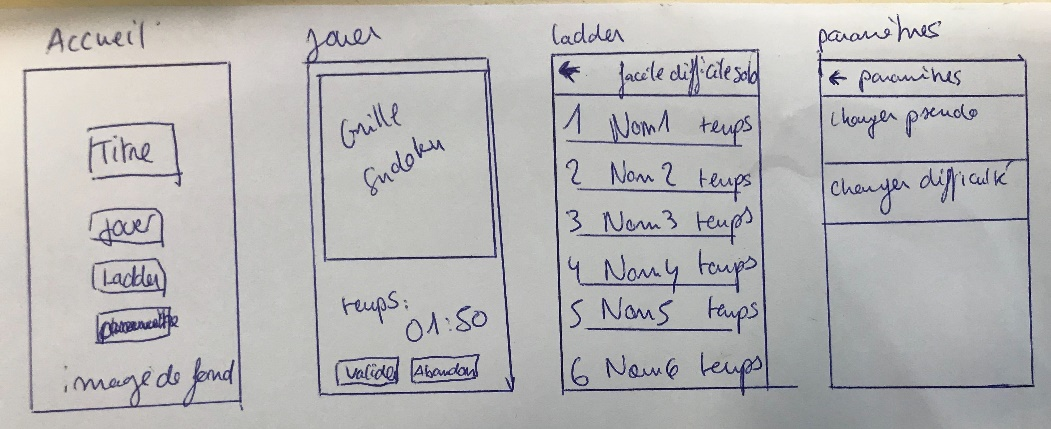 Accueil
Titre
Jouer
Ladder
image de fond
Jouer
Grille
Sudoku
temps:
01:50
Valider
Abandon
ladder
← facile difficile solo
1 Nom1 temps
2 Nom2 temps
3 Nom3 temps
4 Nom4 temps
5 Nom5 temps
6 Nom6 temps
paramètres
← paramètres
changer pseudo
changer difficulté